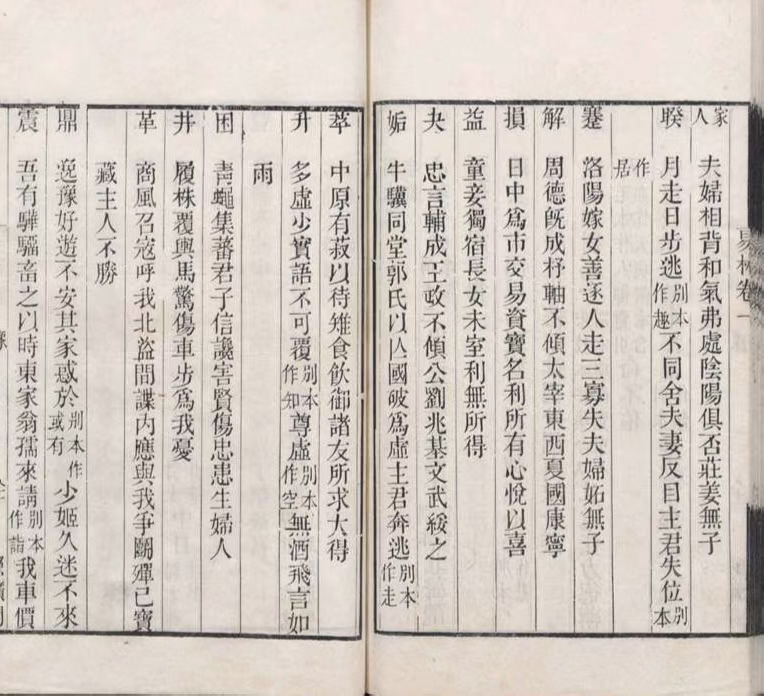 家人　夫婦相背和氣弗處陰陽俱否莊姜無子
睽　月走日步逃別本作趣不同舍夫妻反目主君失位別本
作居
蹇　洛陽嫁女善逐人走三寡失夫婦妬無子
解　周德旣成杼軸不傾太宰東西夏國康寧
損　日中爲市交易資寶名利所有心悅以喜
益　童妾獨宿長女未室利無所得
夬　忠言輔成王政不傾公劉兆基文武綏之
姤　牛驥同堂郭氏以亾國破爲虛主君奔逃別本作走
易林卷一
萃　中原有菽以待雉食飲御諸友所求大得
升　多虛少實語不可覆別本作知尊虛別本作空無酒飛言如
雨
困　靑蠅集蕃君子信讒害賢傷忠患生婦人
井　履株覆輿馬驚傷車步爲我憂
革　商風召寇呼我北盜間諜內應與我爭鬭殫已寶
藏主人不勝
鼎　逸豫好遊不安其家惑於別本作或有少姬久迷不來
震　吾有驊騮畜之以時東家翁孺來請別本作詣我車價